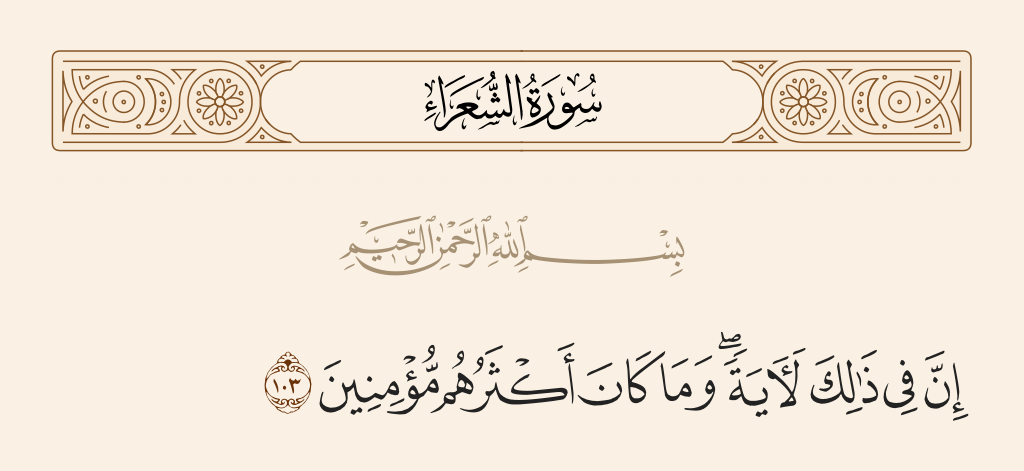 سُورَةُ الشُّعَرَاءِ
بِسْمِ ٱللَّهِ ٱلرَّحْمَٰنِ ٱلرَّحِيمِ
إِنَّ فِى ذَٰلِكَ لَـَٔايَةً ۖ وَمَا كَانَ أَكْثَرُهُم مُّؤْمِنِينَ ١٠٣